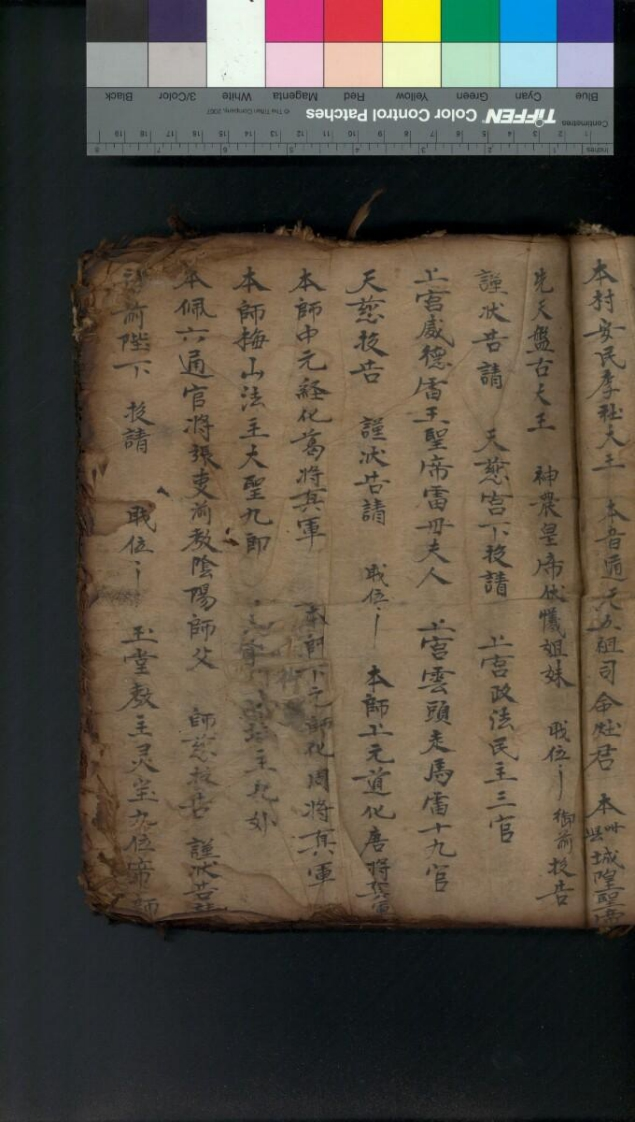 Blue Cyan Green Yellow Red Magenta White 3/Color Black
TIFFEN Color Control Patches
© The Tiffen Company, 2007
Centimetres
Inches
本村安民李社大王 本音道 五祖司命灶君 本 城隍聖帝
先天盤古大王 神農皇帝伏犧姐妹 戝位 御前投告
謹狀告請 天慈宮下投請 上宮政法民主三官
上宮威德雷王聖帝雷毋夫人 上宮雲頭走馬雷十九官
天慈投告 謹狀告請 戝位 本師上元道化唐將兵軍
本師中元経化葛將兵軍 本師下元 化周將兵軍
本師梅山法主大聖九郎 主
本佩六通官將張吏前教陰陽師父 師慈投告 謹狀告請
前陛下 投請 戝位 玉堂教主灵宝九位帝師